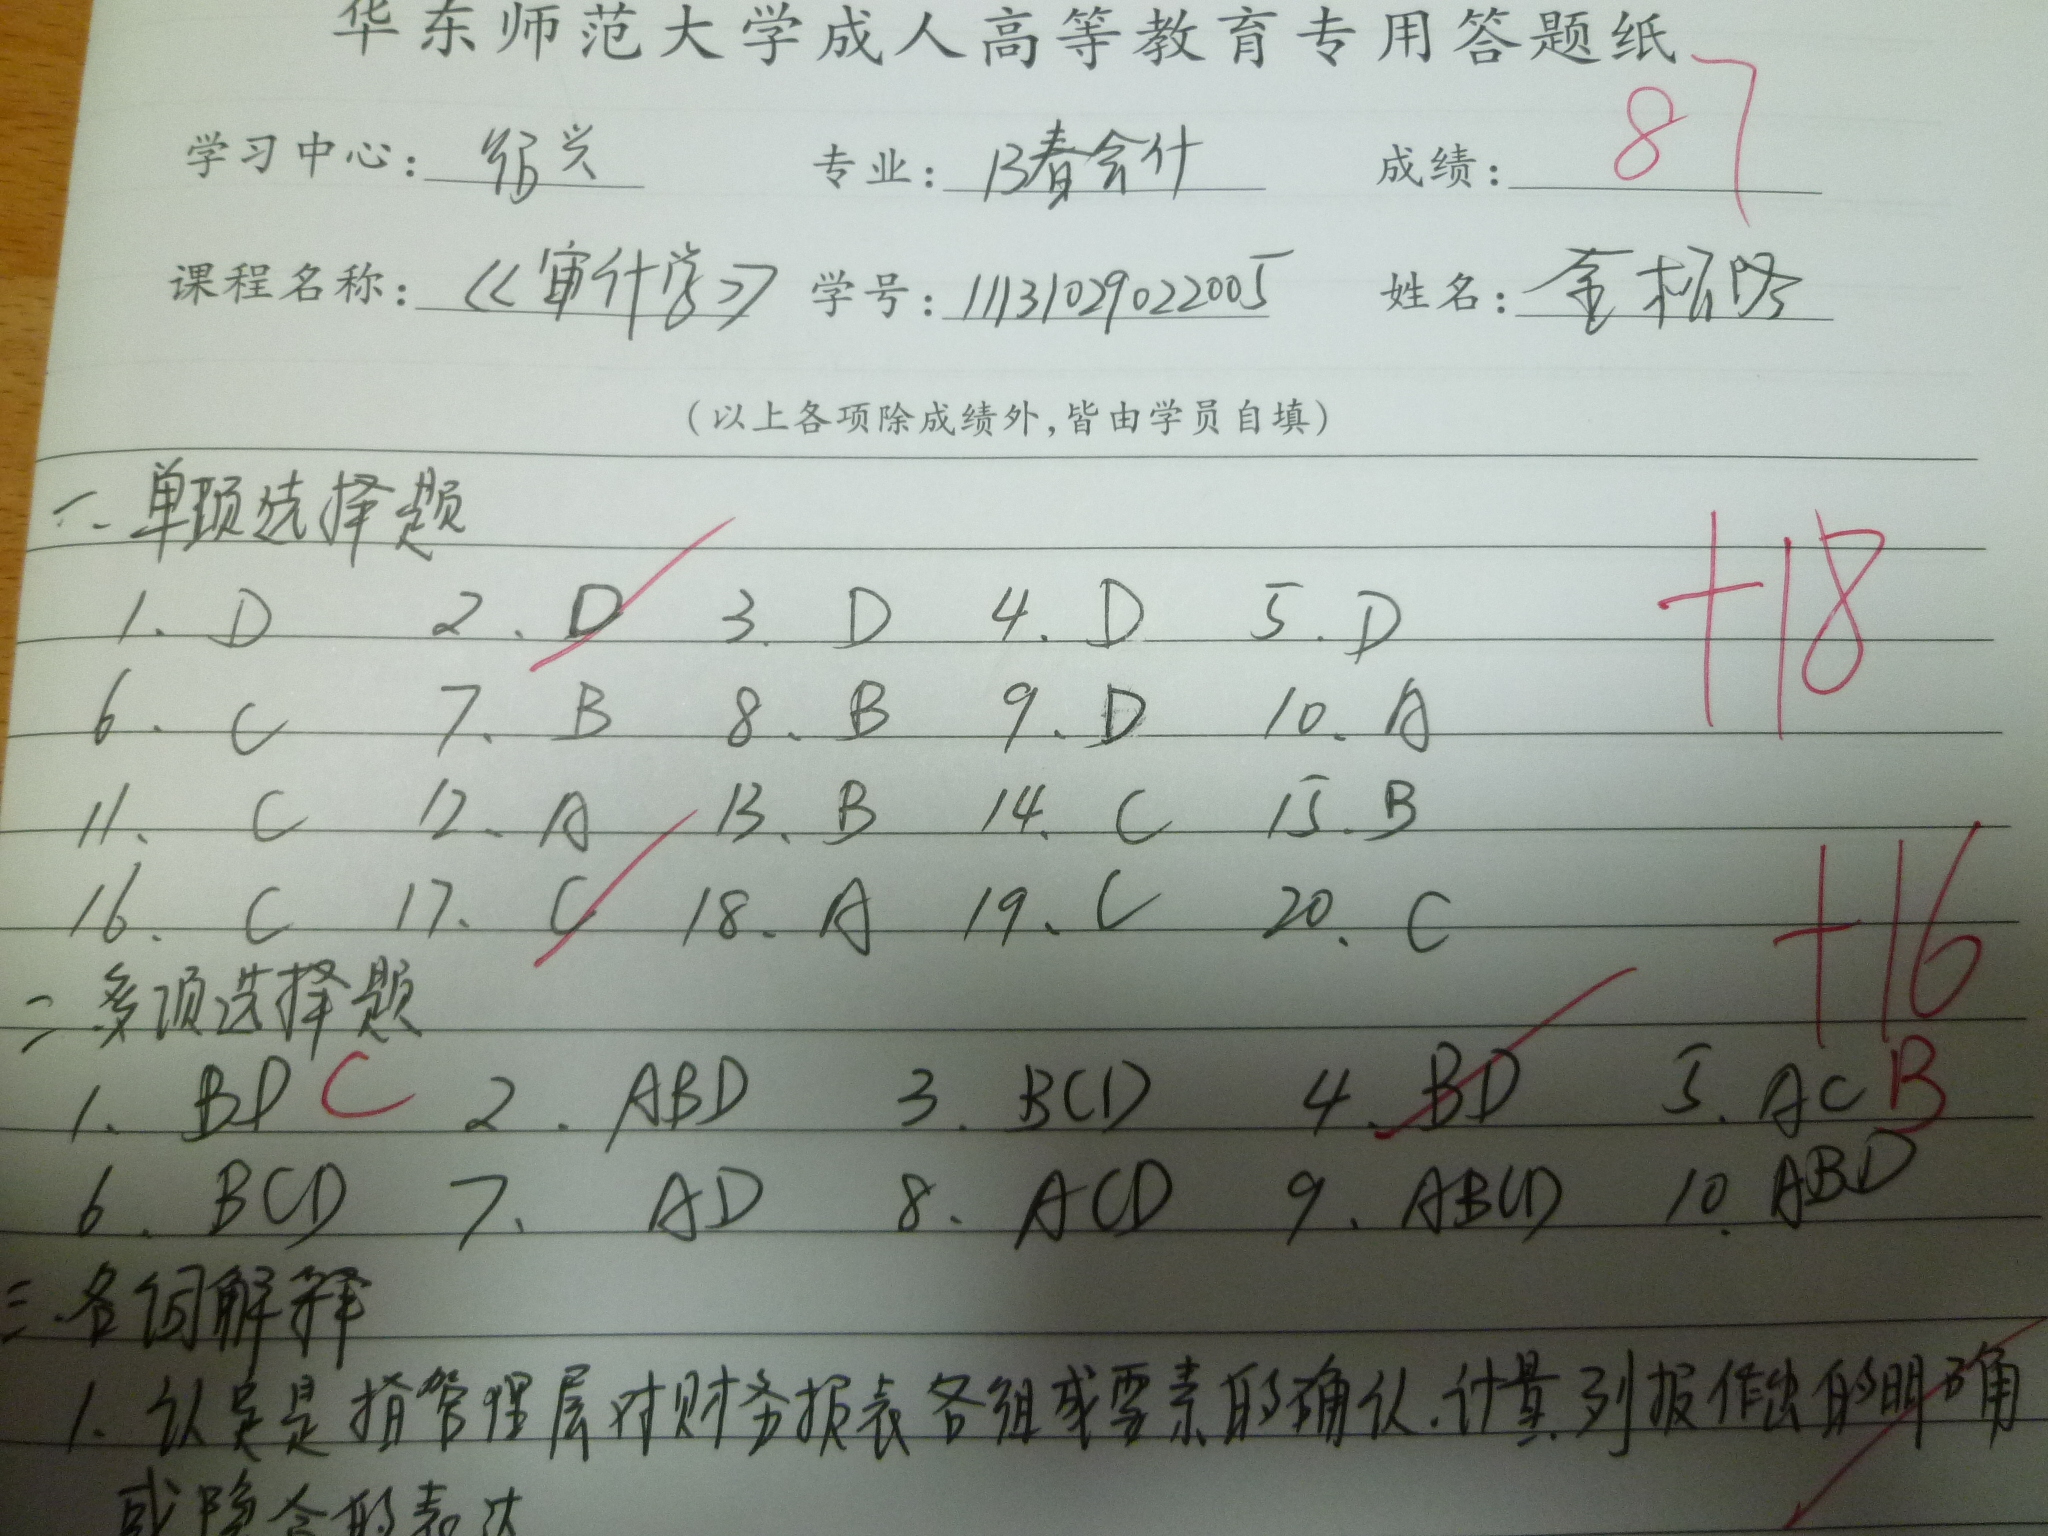 华东师范大学成人高等教育专用答题纸
学习中心: 绍兴 专业: 13春会计 成绩: 87
课程名称: 《审计学》 学号: 11131029022005 姓名: 金
(以上各项除成绩外,皆由学员自填)
一、单项选择题
1. D 2. D 3. D 4. D 5. D +18
6. C 7. B 8. B 9. D 10. A
11. C 12. A 13. B 14. C 15. B
16. C 17. C 18. A 19. C 20. C +16
二 多项选择题
1. BD C 2. ABD 3. BCD 4. BD 5. AC B
6. BCD 7. AD 8. ACD 9. ABCD 10. ABD
三.名词解释
1. 认定是指管理层对财务报表各组成要素的确认.计量.列报作出的明确
或隐含的表达